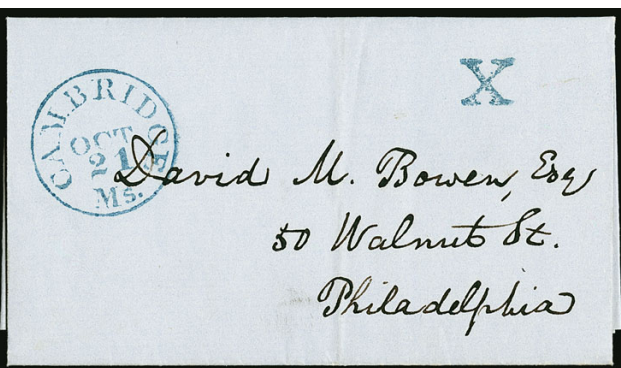 CAMBRIDGE
OCT
21
Ms.
X
David M. Bowen, Esq
50 Walnut St.
Philadelphia